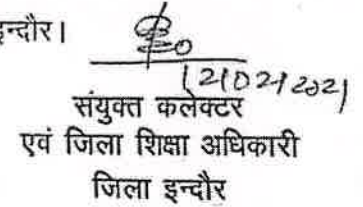 इन्दौर।
12/02/2021
संयुक्त कलेक्टर
एवं जिला शिक्षा अधिकारी
जिला इन्दौर